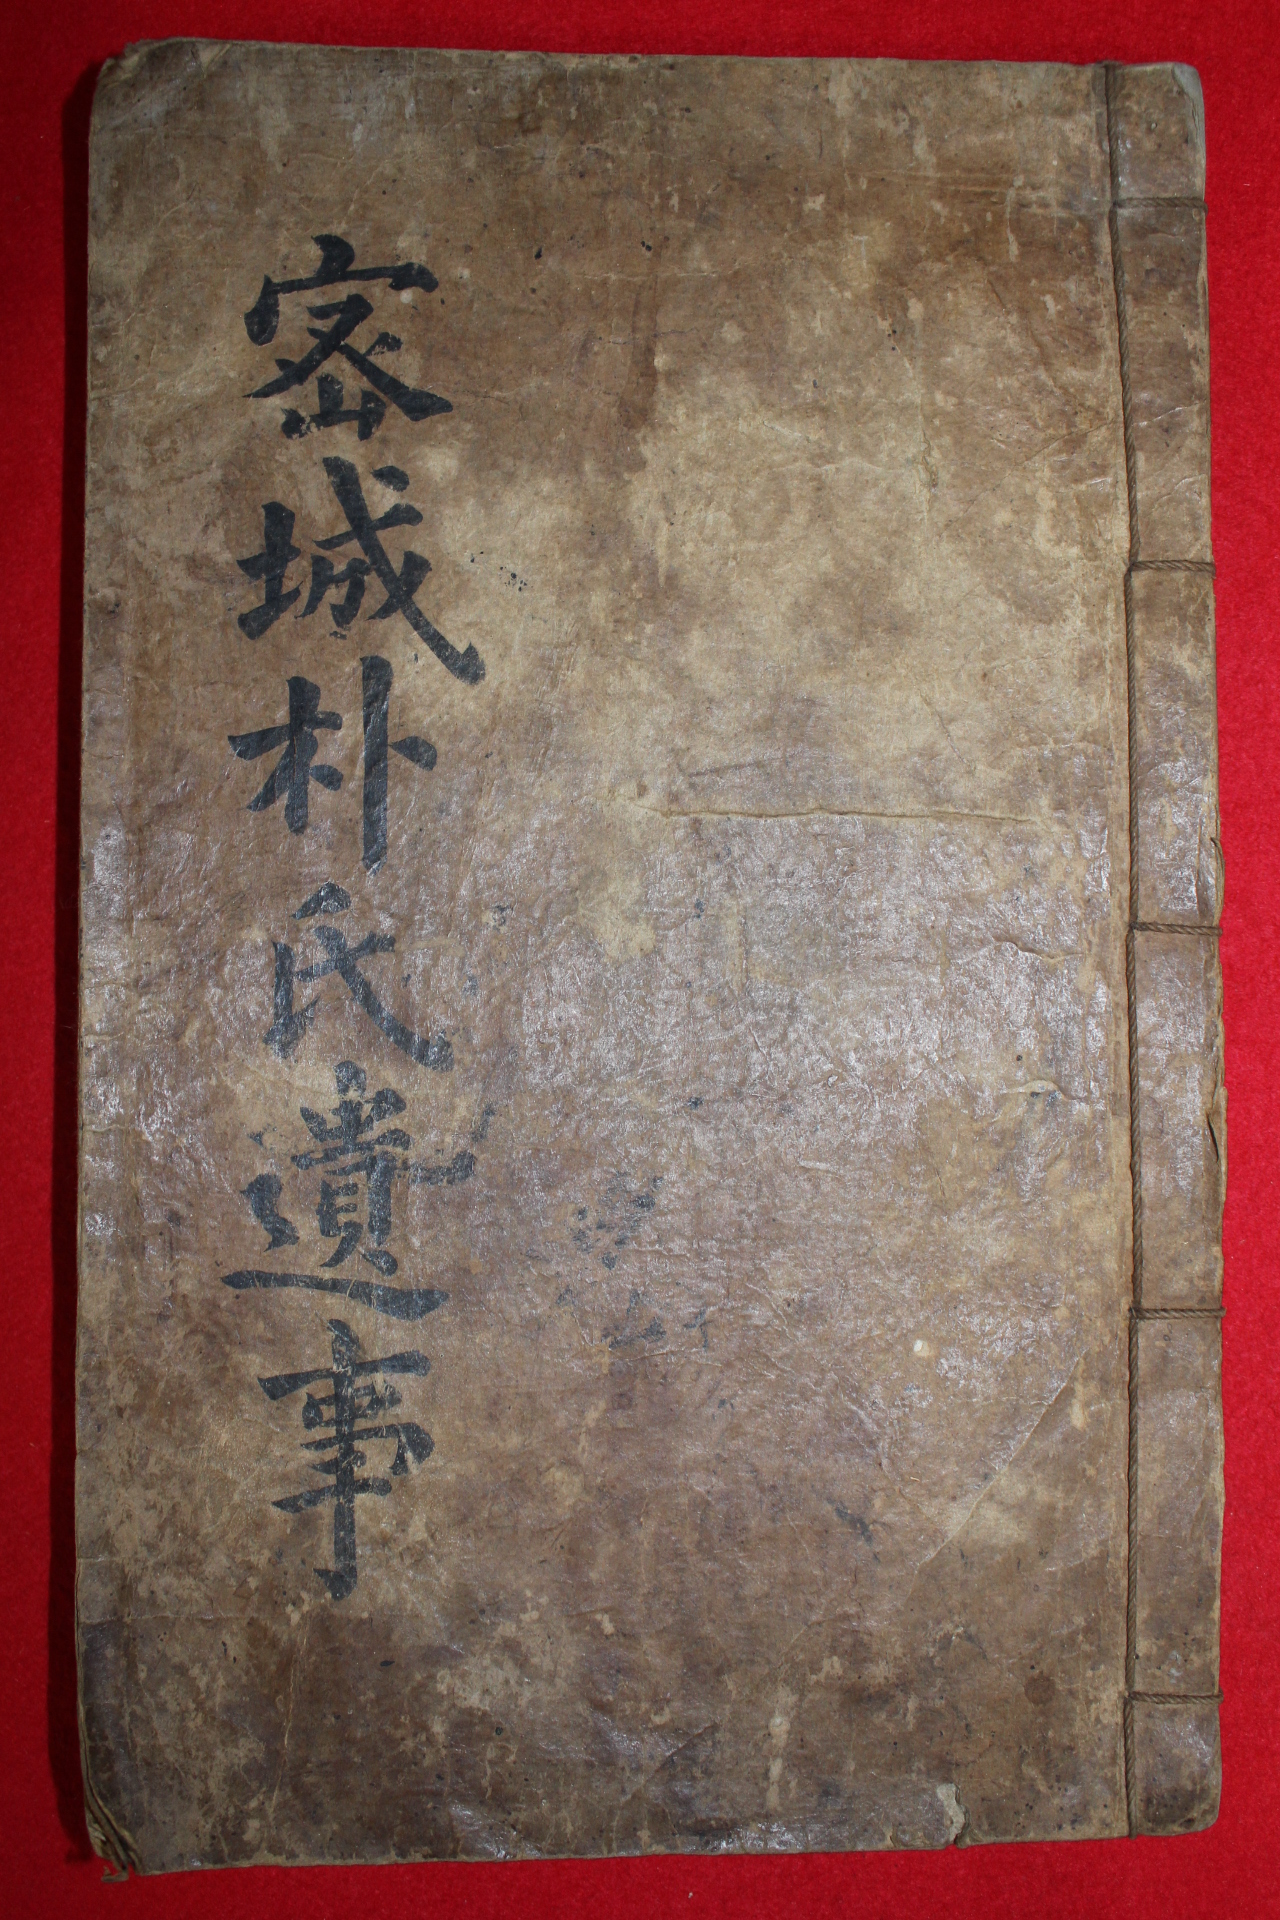 密城朴氏遺事